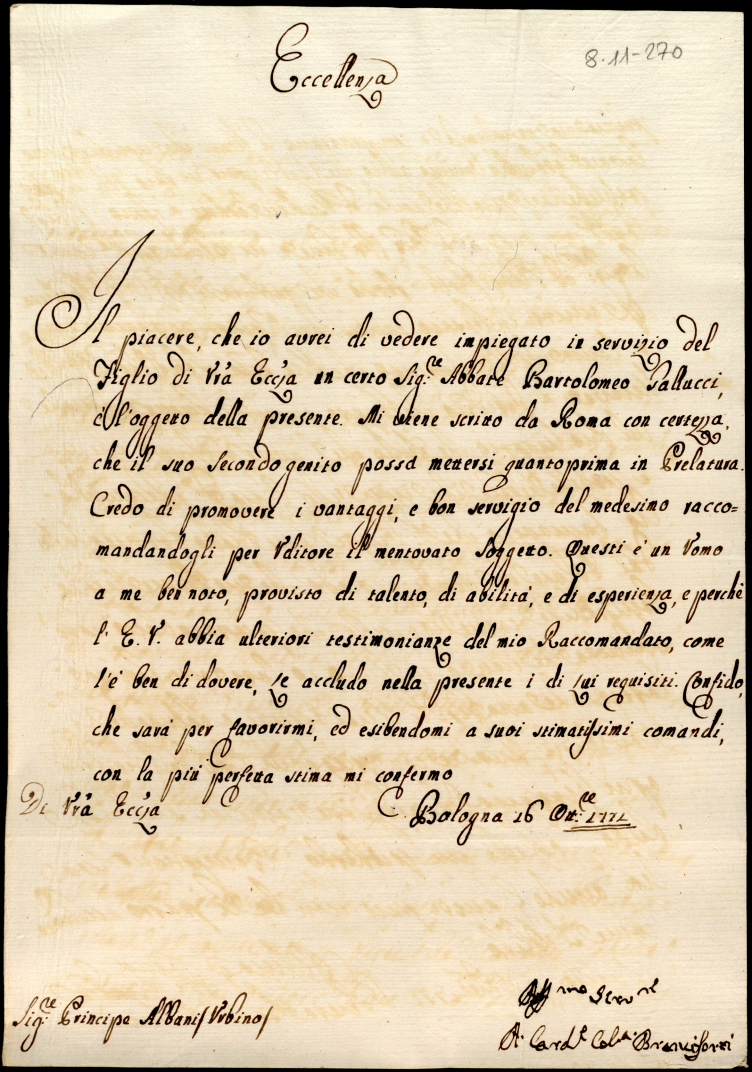 8-11-270
Eccellenza
Il piacere, che io avrei di vedere inpiegato in servizio del
Figlio di Vrã Ecc:za un certo Sig:re Abbate Bartolomeo Gallucci,
è l'oggetto della presente. Mi viene scritto da Roma con certezza,
che il suo Secondogenito possa mettersi quantoprima in Prelatura.
Credo di promovere i vantaggi, e bon servigio del medesimo racco=
mandandogli per Uditore il mentovato soggetto. Questi è un Uomo
a me ben noto, provisto di talento, di abilità, e di esperienza, e perchè
l'E. V. abbia ulteriori testimonianze del mio Raccomandato, come
l'è ben di dovere, Le accludo nella presente i di Lui requisiti. Confido,
che sarà per favorirmi, ed esibendomi a suoi stimatissimi comandi,
con la più perfetta stima mi confermo
Di Vrã Ecc:za
Bologna 16 Ott:re 1771
Sig:re Principe Albani / Urbino /
Aff mo Serv re
A: Card. Branciforti